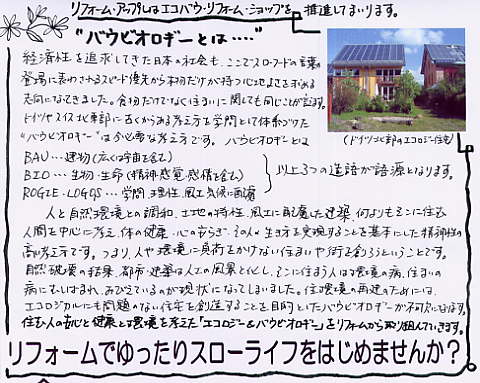 リフォーム・アップルはエコバウ・リフォーム・ショップを推進してまいります。
"バウビオロギーとは・・・・"
経済性を追求してきた日本の社会も、ここでスローフードの言葉の
登場に表わされるスピード優先から本物だけが持つ心地よさを求める
志向になってきました。食物だけでなく住まいに関しても同じことが言えます。
ドイツやスイス北東部に古くからある考え方を学問として体系づけた
"バウビオロギー"は今必要な考え方です。バウビオロギーとは
BAU・・・建物(広くは宇宙を含む)
BIO・・・生物・生命(精神・感覚・感情を含む)
ROGIE・LOGOS・・・学問、理性、風土気候に配慮
以上3つの造語が語源となります。
(ドイツ北部のエコロジー住宅)
人と自然環境との調和、土地の特性、風土に配慮した建築、何よりもそこに住む
人間を中心に考え、体の健康、心の安らぎ、その人の生き方を実現することを基本にした精神性の
高い考え方です。つまり、人や環境に負荷をかけない住まいや街を創ろうということです。
自然破壊の結果、都市・建築は人工の風景と化し、そこに住まう人は環境の病、住まいの
病にむしばまれ、おびえているのが現状になってしまいました。住環境の再建のためには、
エコロジカルにも問題のない住宅を創造することを目的としたバウビオロギーが不可欠になります。
住む人の安心と健康と環境を考えた「エコロジー&バウビオロギー」をリフォームから取り組んでいきます。
リフォームでゆったりスローライフをはじめませんか?